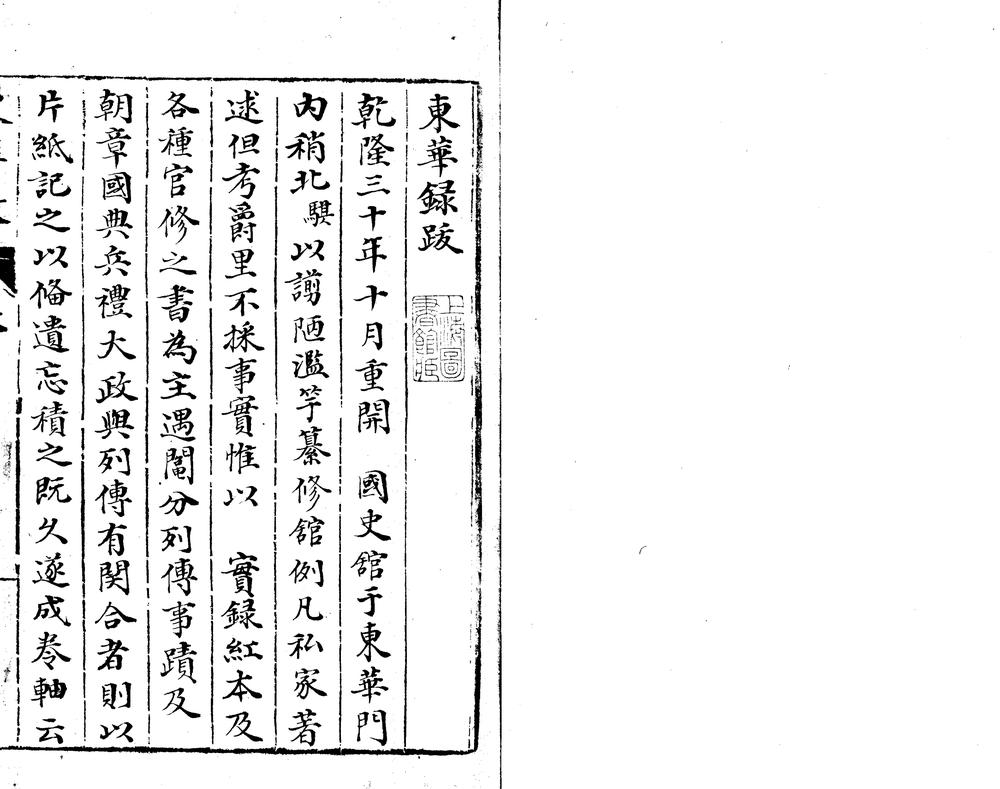 東華録跋
上海圖書館藏
乾隆三十年十月重開　國史舘于東華門
内稍北騏以謭陋濫竽纂修舘例凡私家著
述但考爵里不採事實惟以　實録紅本及
各種官修之書為主遇閹分列傳事蹟及
朝章國典兵禮大政與列傳有関合者則以
片紙記之以俻遺忘積之既久遂成卷軸云